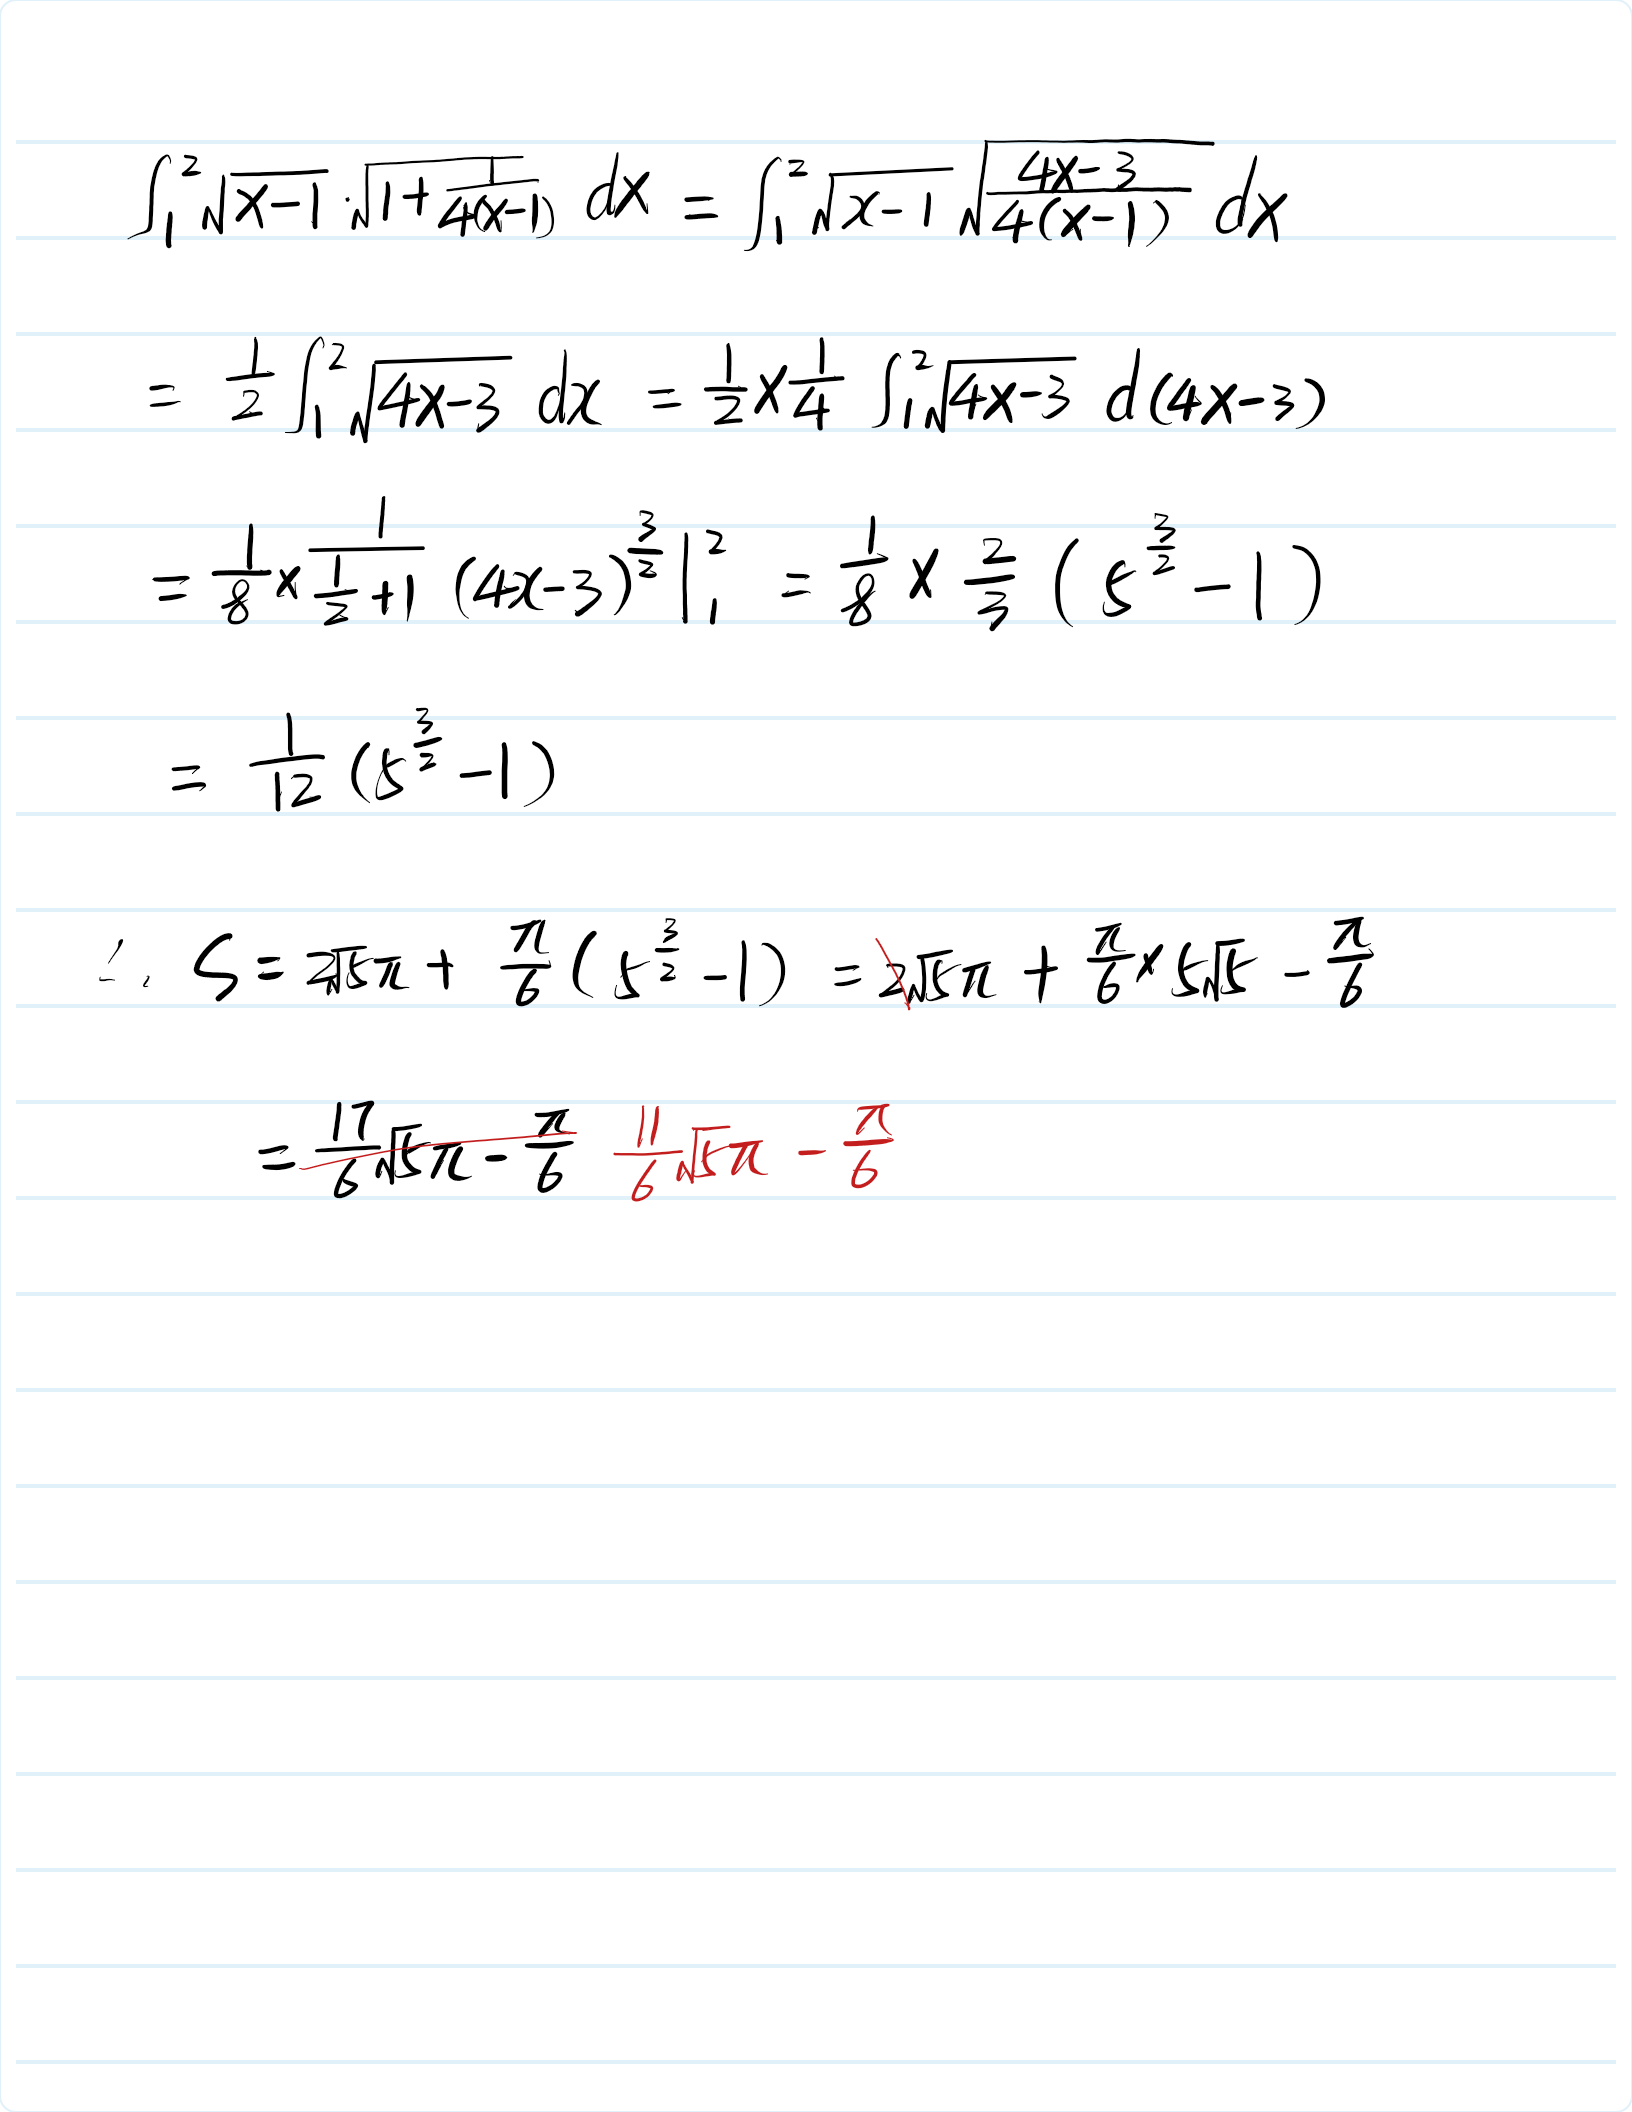 ∫₁² √(x-1) · √(1 + 1/(4(x-1))) dx = ∫₁² √(x-1) √((4x-3)/(4(x-1))) dx
= 1/2 ∫₁² √(4x-3) dx = 1/2 × 1/4 ∫₁² √(4x-3) d(4x-3)
= 1/8 × 1/(1/2 + 1) (4x-3)^(3/2) |₁² = 1/8 × 2/3 (5^(3/2) - 1)
= 1/12 (5^(3/2) - 1)
∴ S = 2√5π + π/6 (5^(3/2) - 1) = 2√5π + π/6 × 5√5 - π/6
= 17/6 √5π - π/6 11/6 √5π - π/6